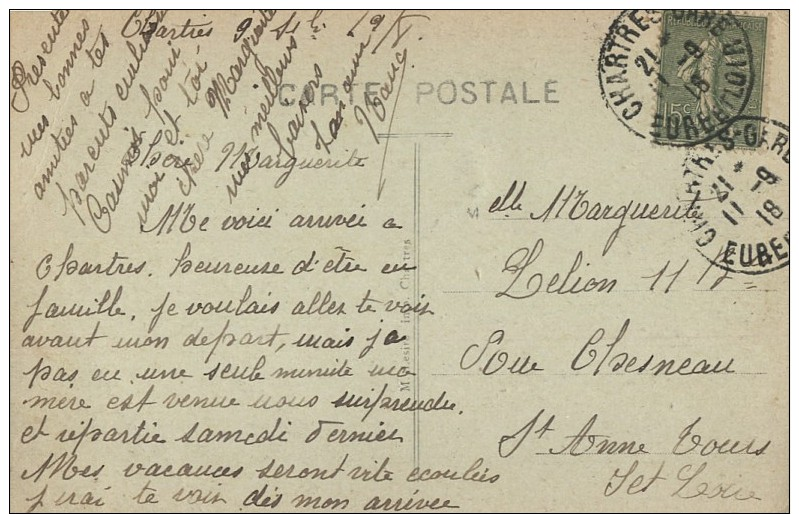 Chartres 9
CARTE POSTALE
Chère Marguerite
Me voici arrivée a
Chartres. heureuse d'être en
famille, je voulais aller te voir
avant mon depart, mais j'a
pas eu une seule minute ma
mère est venue nous surprendre.
et repartie samedi dernier
Mes vacances seront vite ecoulées
j'irai te voir dès mon arrivée
Presente
mes bonnes
amities a tes
parents
pour
moi et toi
chère Marguerite
mes meilleurs
baisers
Ton amie
elle Marguerite
Lelion 11
Rue Chesneau
St Anne Tours
I et Loire
CHARTRES-GARE
21 - 9
11 18
EURE ET LOIR
CHARTRES-GARE
21 - 9
11 18
EURE
15c